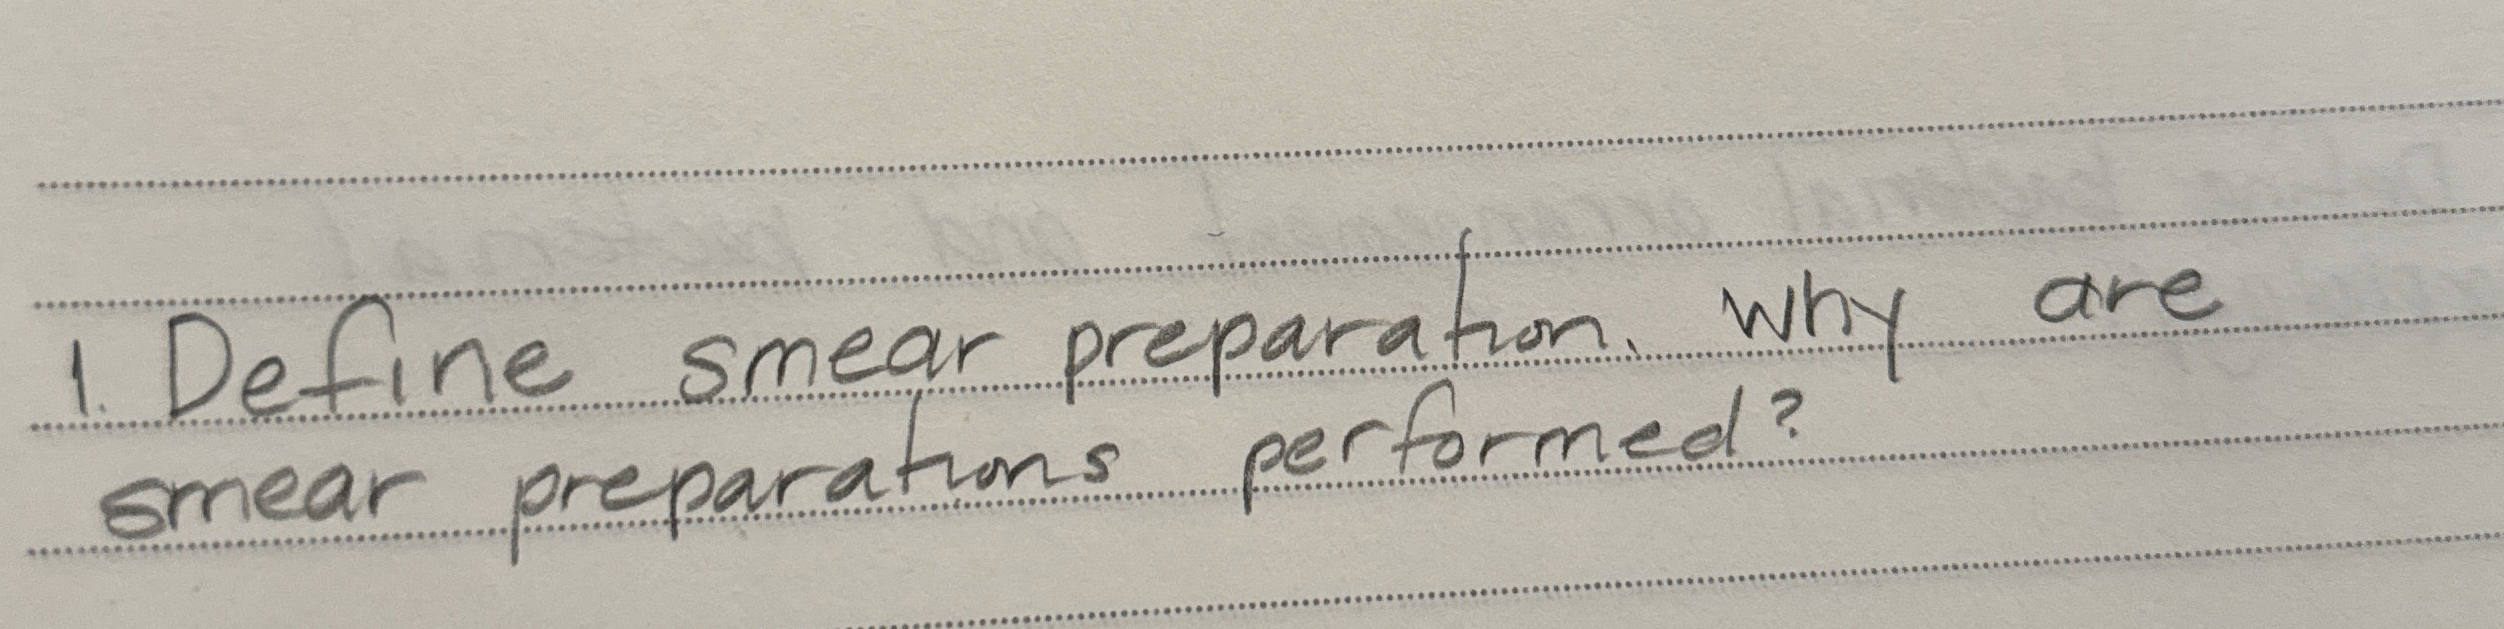 1. Define smear preparation. Why are
smear preparations performed?